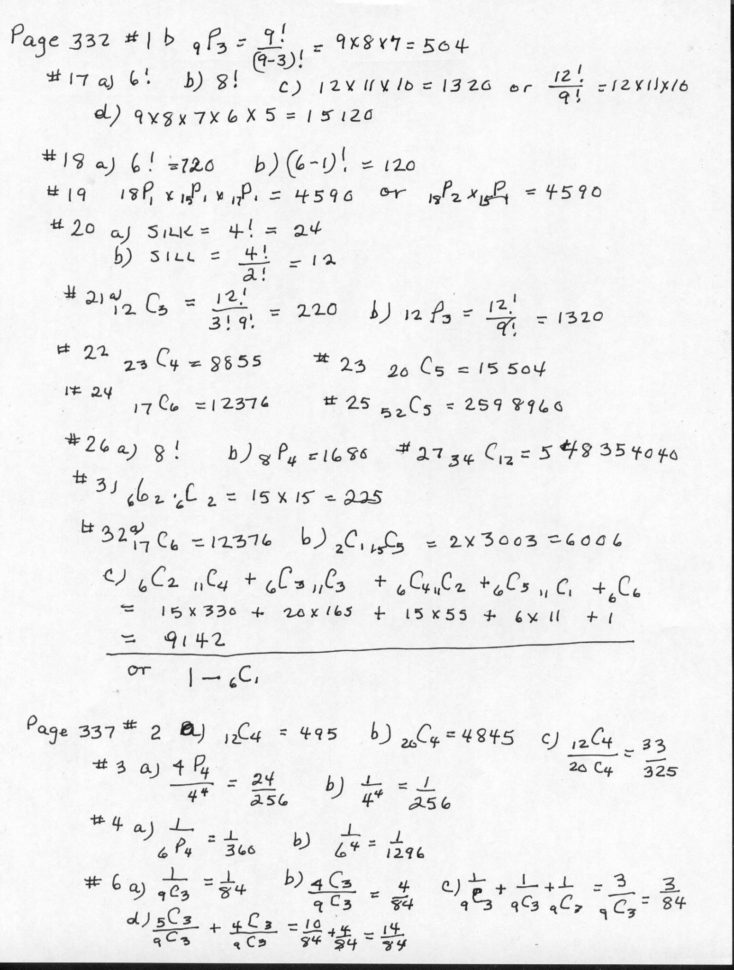 Page 332 #1 b ₉P₃ = 9!/(9-3)! = 9x8x7 = 504
#17 a) 6! b) 8! c) 12 x 11 x 10 = 1320 or 12!/9! = 12x11x10
d) 9x8x7x6x5 = 15120
#18 a) 6! = 720 b) (6-1)! = 120
#19 18P₁ x ₁₅P₁ x ₁₇P₁ = 4590 or ₁₈P₂ x ₁₅P₁ = 4590
#20 a) SILK = 4! = 24
b) SILL = 4!/2! = 12
#21 a) ₁₂C₃ = 12!/3!9! = 220 b) 12P₃ = 12!/9! = 1320
#22 ₂₃C₄ = 8855 #23 ₂₀C₅ = 15504
#24 ₁₇C₆ = 12376 #25 ₅₂C₅ = 2598960
#26 a) 8! b) ₈P₄ = 1680 #27 ₃₄C₁₂ = 548354040
#31 ₆C₂ · ₆C₂ = 15 x 15 = 225
#32 a) ₁₇C₆ = 12376 b) ₂C₁ ₁₅C₅ = 2x3003 = 6006
c) ₆C₂ ₁₁C₄ + ₆C₃ ₁₁C₃ + ₆C₄ ₁₁C₂ + ₆C₅ ₁₁C₁ + ₆C₆
= 15 x 330 + 20 x 165 + 15 x 55 + 6 x 11 + 1
= 9142
or 1 - ₆C₁
Page 337 # 2 a) ₁₂C₄ = 495 b) ₂₀C₄ = 4845 c) ₁₂C₄/₂₀C₄ = 33/325
#3 a) 4P₄/4⁴ = 24/256 b) 1/4⁴ = 1/256
#4 a) 1/₆P₄ = 1/360 b) 1/6⁴ = 1/1296
#6 a) 1/₉C₃ = 1/84 b) ₄C₃/₉C₃ = 4/84 c) 1/₉C₃ + 1/₉C₃ + 1/₉C₃ = 3/₉C₃ = 3/84
d) ₅C₃/₉C₃ + ₄C₃/₉C₃ = 10/84 + 4/84 = 14/84